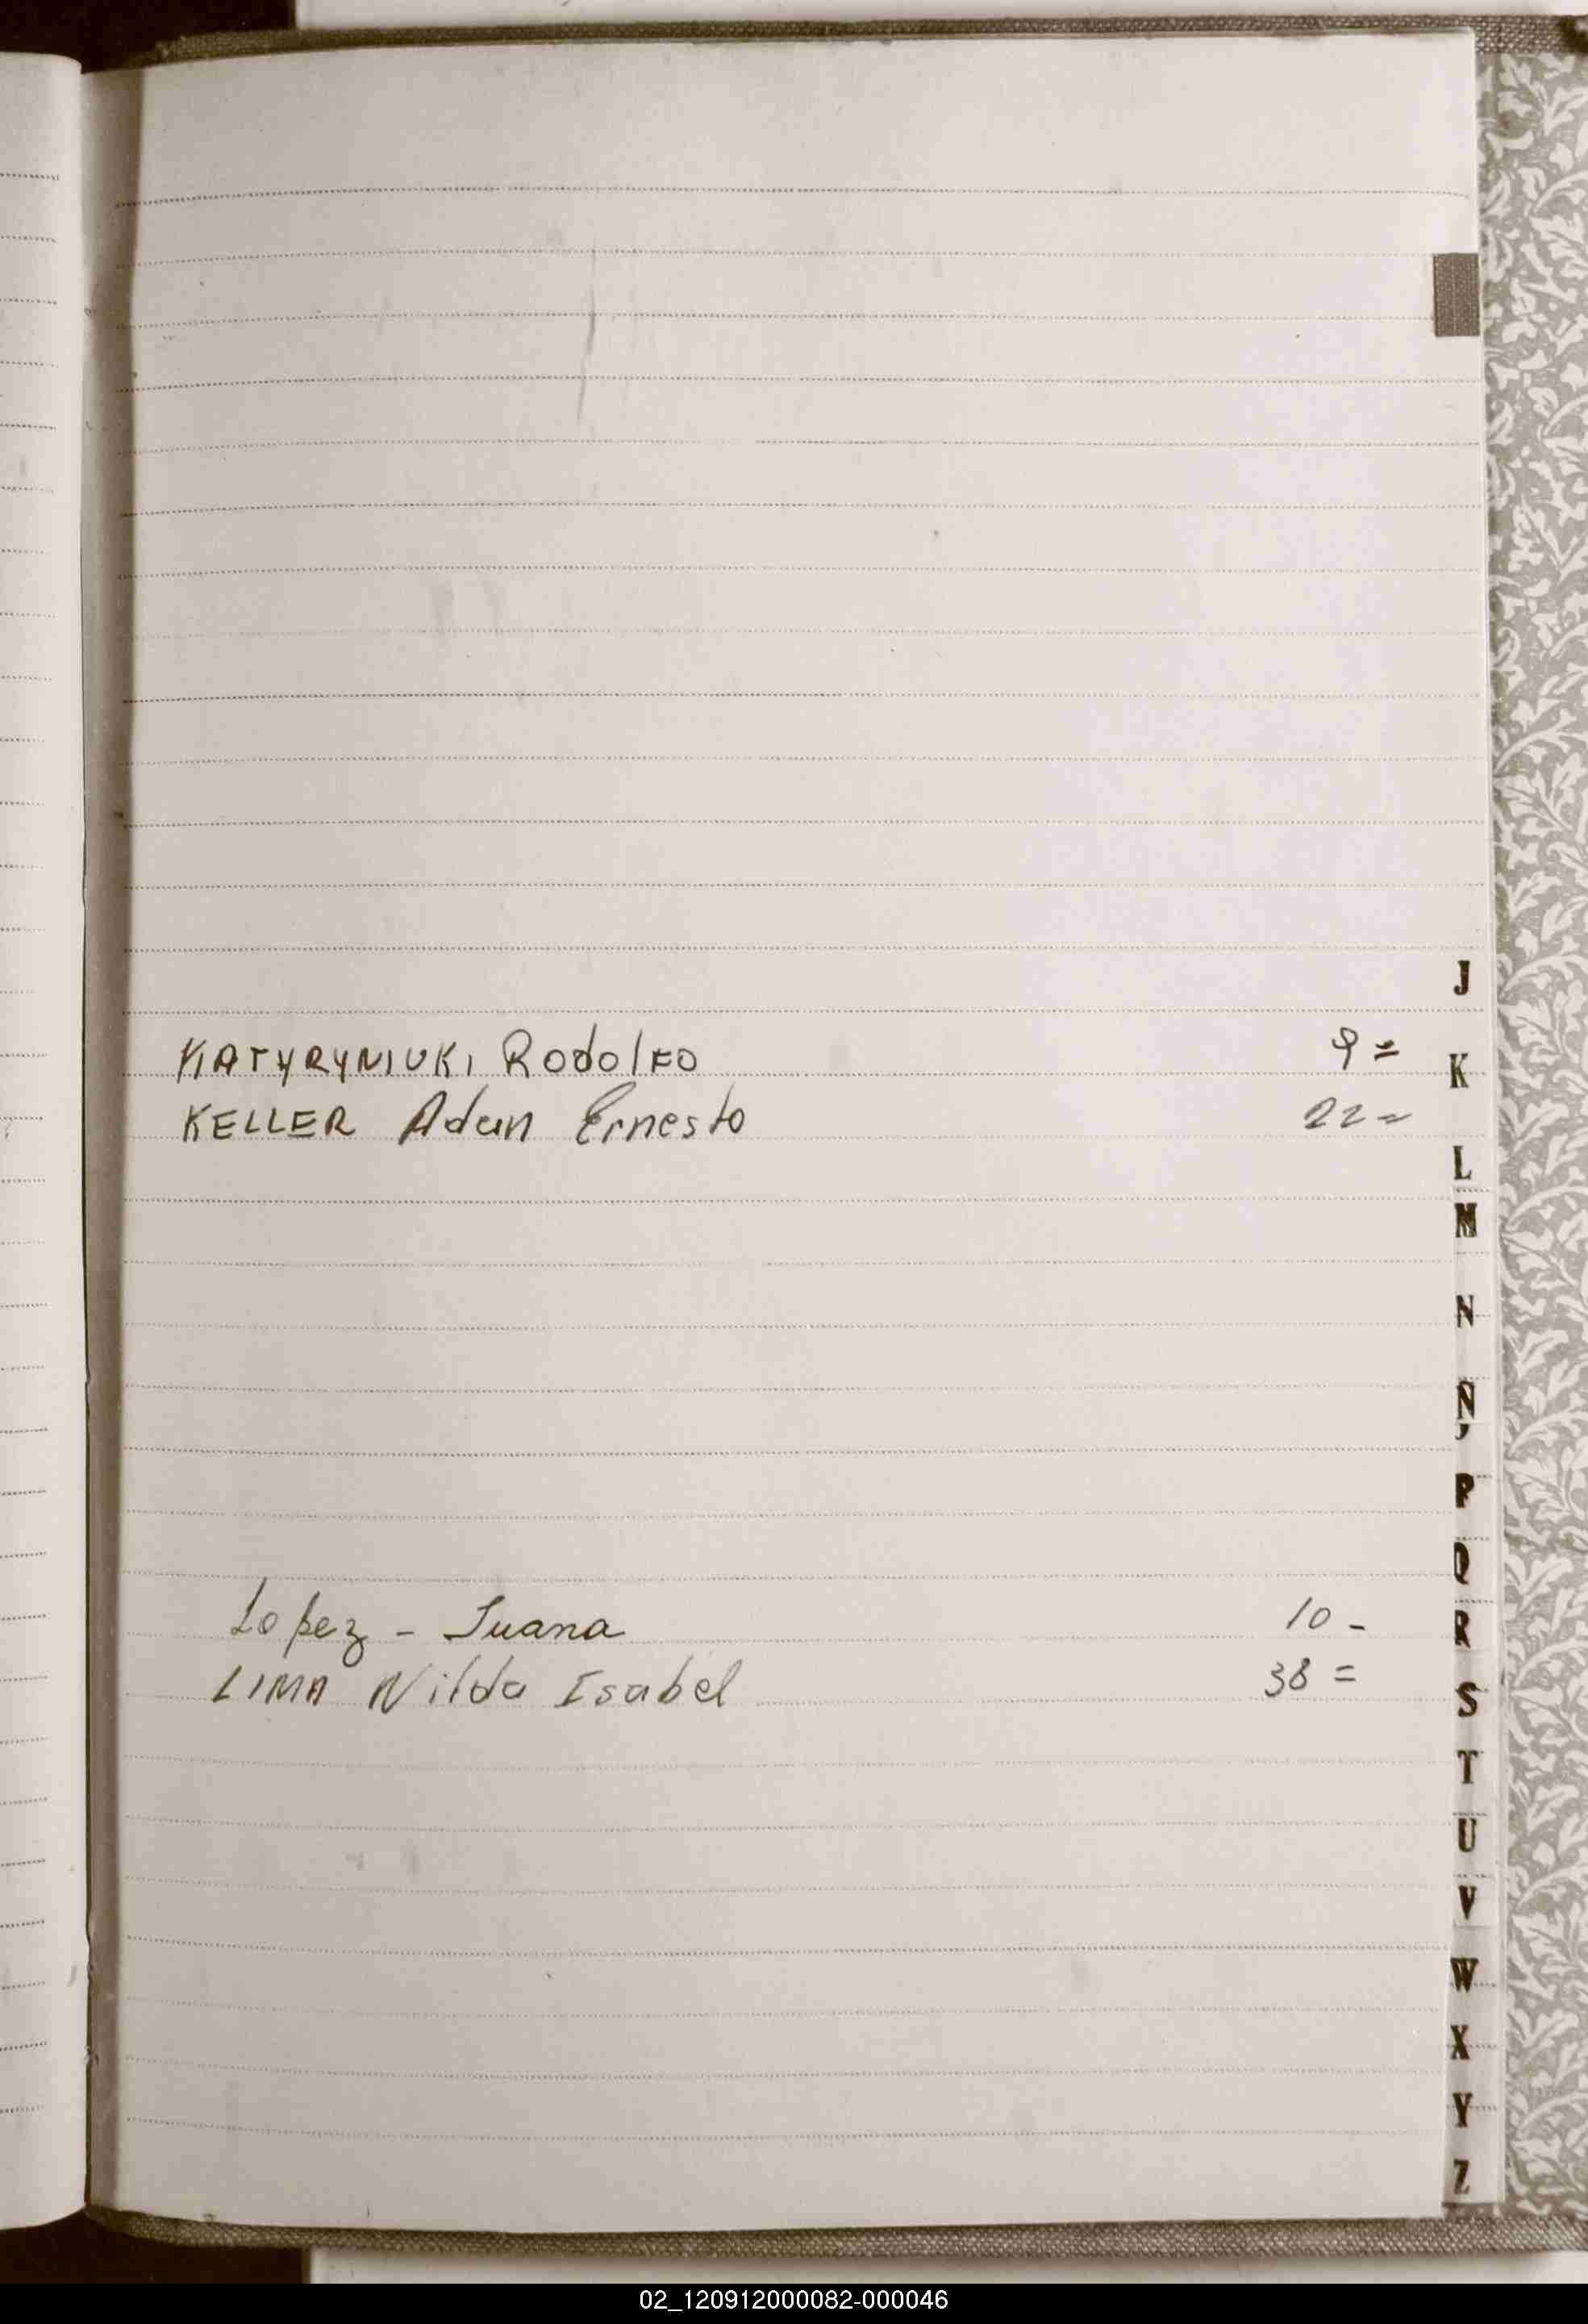 J
KATYRYNIUKI Rodolfo 9=
K
KELLER Adan Ernesto 22=
L
M
N
Ñ
P
Q
Lopez - Juana 10-
R
LIMA Nilda Isabel 38=
S
T
U
V
W
X
Y
Z
02_120912000082-000046